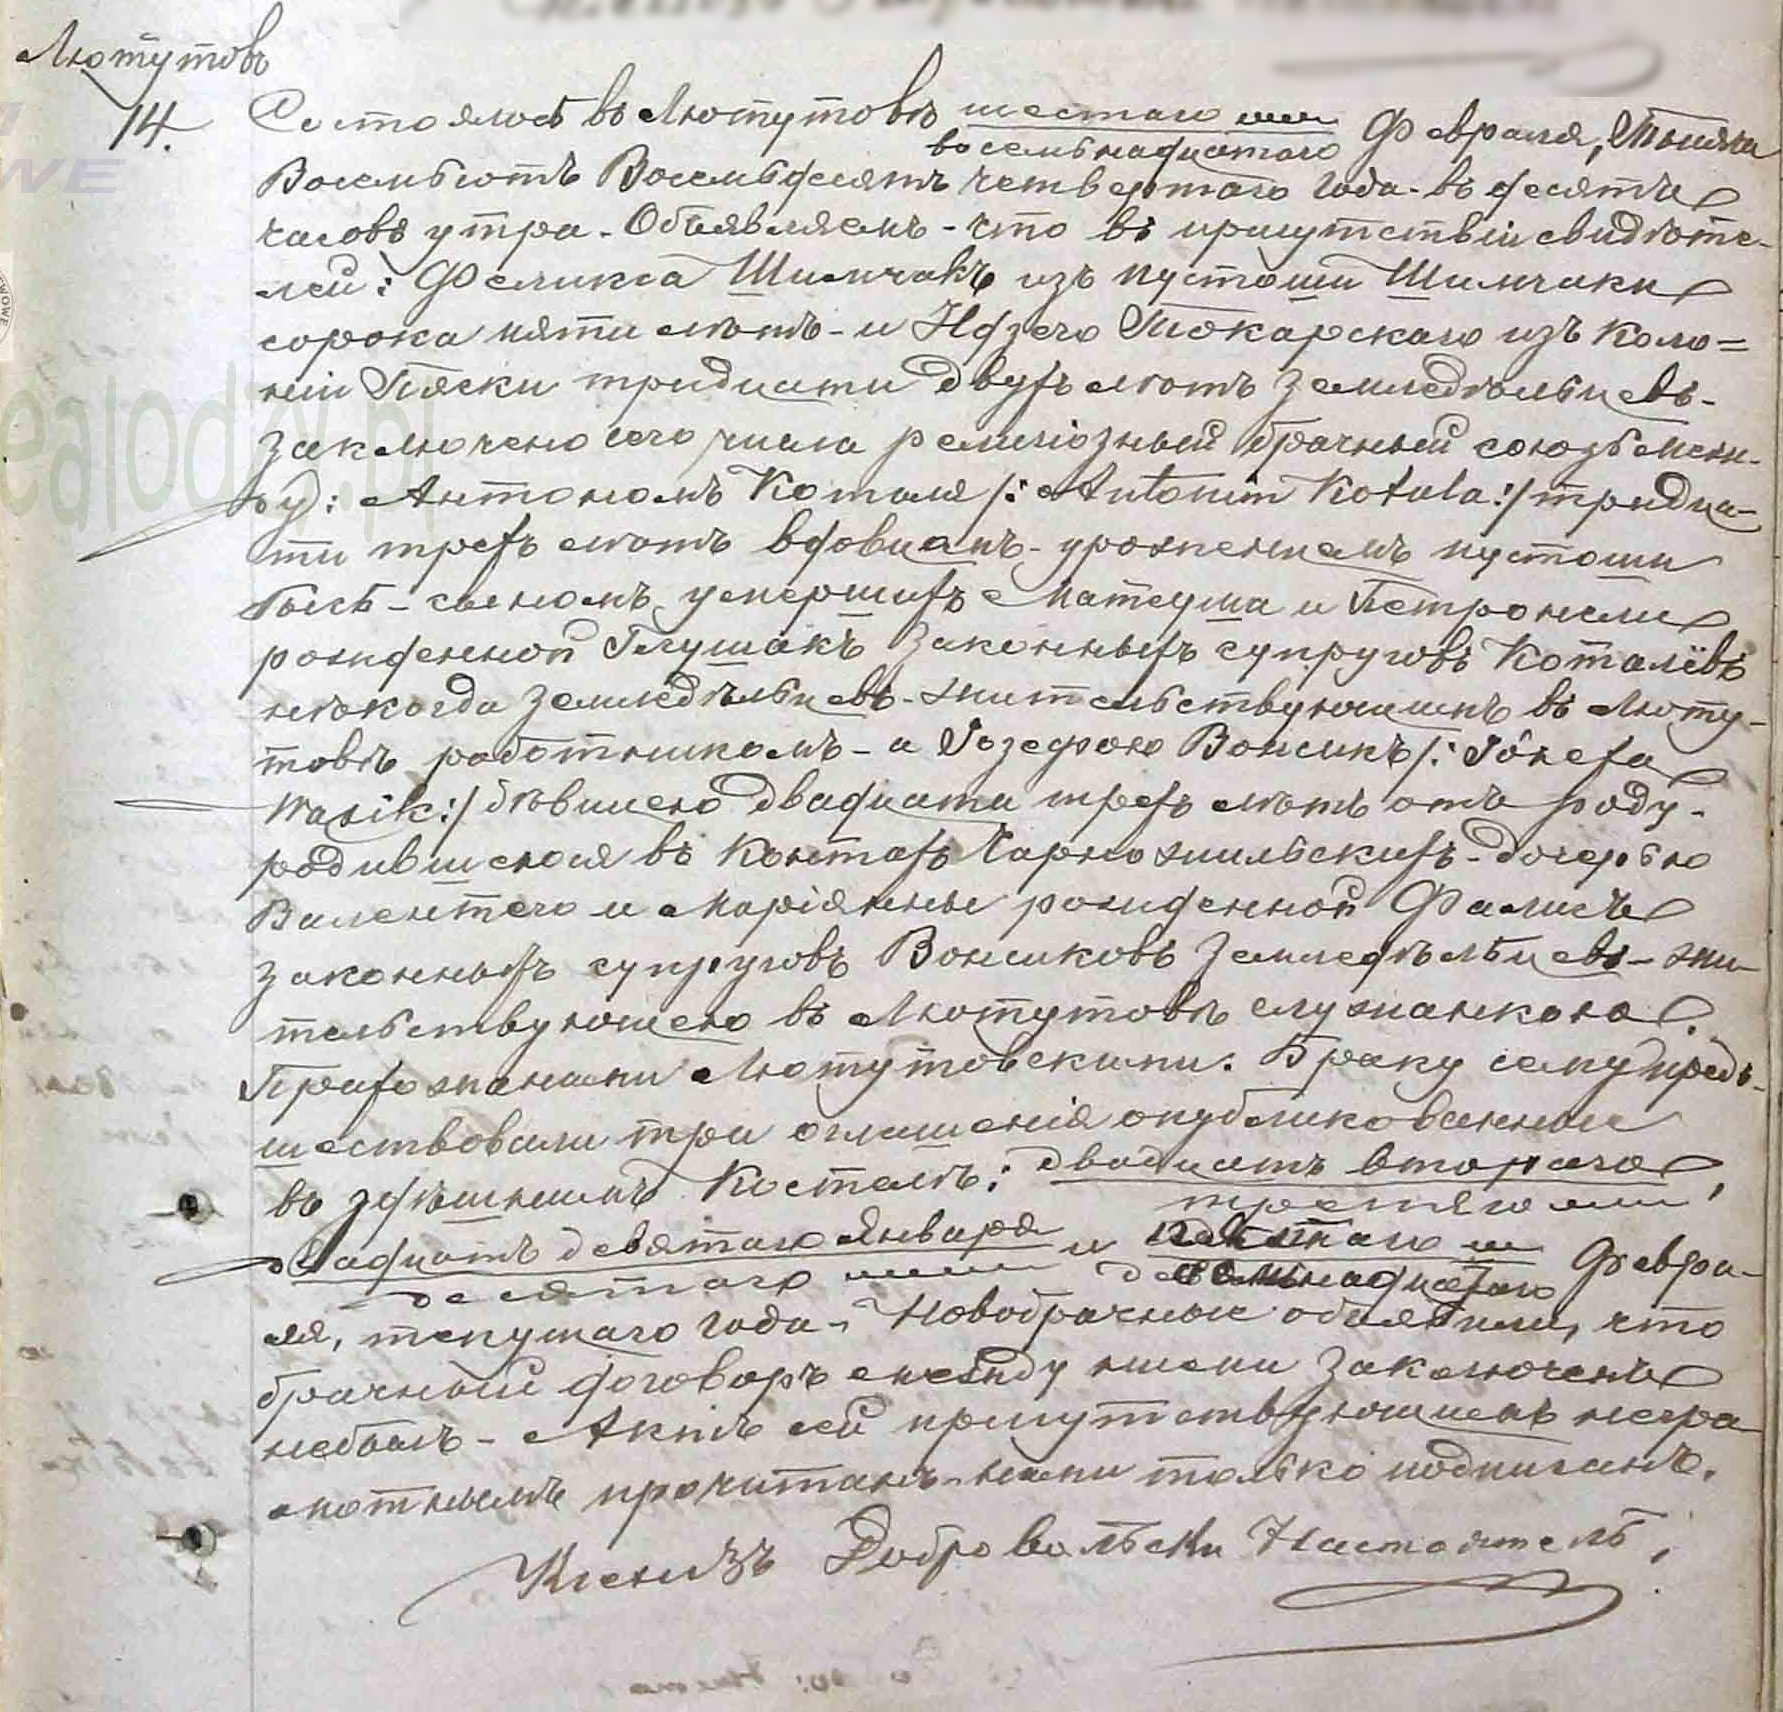 Лютутовъ
14.
Состоялось въ Лютутовѣ шестаго Февраля, Тысяча
восемьнадцатаго
Восемьсотъ Восемьдесятъ четвертаго года - въ десять
часовъ утра - Объявляемъ - что въ присутствіи свидѣте-
лей: Феликса Шимчакъ изъ пустоши Шимчаки
сорока пяти лѣтъ - и Идзего Токарскаго изъ Коло=
ніи Пяски тридцати двухъ лѣтъ земледѣльцевъ -
заключено сего числа религіозный брачный союзъ меж-
ду: Антономъ Коталя /: Antonim Kotula :/ тридца-
ти трехъ лѣтъ вдовцемъ - урожденцемъ пустоши
сыномъ умершихъ Матеуша и Петронели
рожденной Глушакъ законныхъ супруговъ Коталёвъ
нѣкогда земледѣльцевъ - жительствующимъ въ Люту-
товѣ работникомъ - и Іозефою Вонсикъ /: Józefa
Wasik :/ дѣвицею двадцати трехъ лѣтъ отъ роду -
родившеюся въ Контахъ Чарножильскихъ - дочерью
Валентего и Маріянны рожденной Фалисъ
законныхъ супруговъ Вонсиковъ земледѣльцевъ - жи-
тельствующею въ Лютутовѣ служанкою.
Прихожанами Лютутовскими. Браку сему пред-
шествовали три оглашенія опубликованныя
въ здѣшнемъ Костелѣ: двадцать втораго,
третяго
двадцать девятаго Января и пятаго Февра-
десятаго
ля, текущаго года - Новобрачные объявили, что
брачный договоръ между ними заключенъ
небылъ - Актъ сей присутствующимъ негра-
мотнымъ прочитанъ - нами только подписанъ.
Ксендзъ Добровольски Настоятель
genealodzy.pl